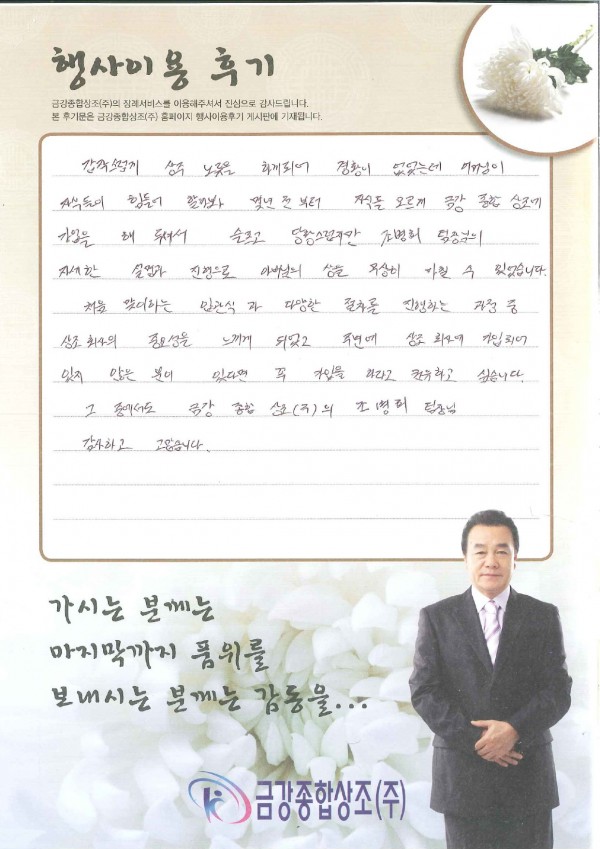 행사이용 후기
금강종합상조(주)의 장례서비스를 이용해주셔서 진심으로 감사드립니다.
본 후기문은 금강종합상조(주) 홈페이지 행사이용후기 게시판에 기재됩니다.
갑작스럽게 상주 노릇을 하게되어 경황이 없었는데 어머님이
자식들이 힘들어 할까봐 몇년 전 부터 자식들 모르게 금강 종합 상조에
가입을 해 두셔서 슬프고 당황스럽지만 조병희 팀장님의
자세한 설명과 진행으로 아버님의 상을 무상히 마칠 수 있었습니다.
처음 맞이하는 입관식 과 다양한 절차를 진행하는 과정 중
상조 회사의 중요성을 느끼게 되었고 주변에 상조 회사에 가입되어
있지 않은 분이 있다면 꼭 가입을 하라고 권유하고 싶습니다.
그 중에서도 금강 종합 상조(주)의 조병희 팀장님
감사하고 고맙습니다.
가시는 분께는
마지막까지 품위를
보내시는 분께는 감동을...
금강종합상조(주)